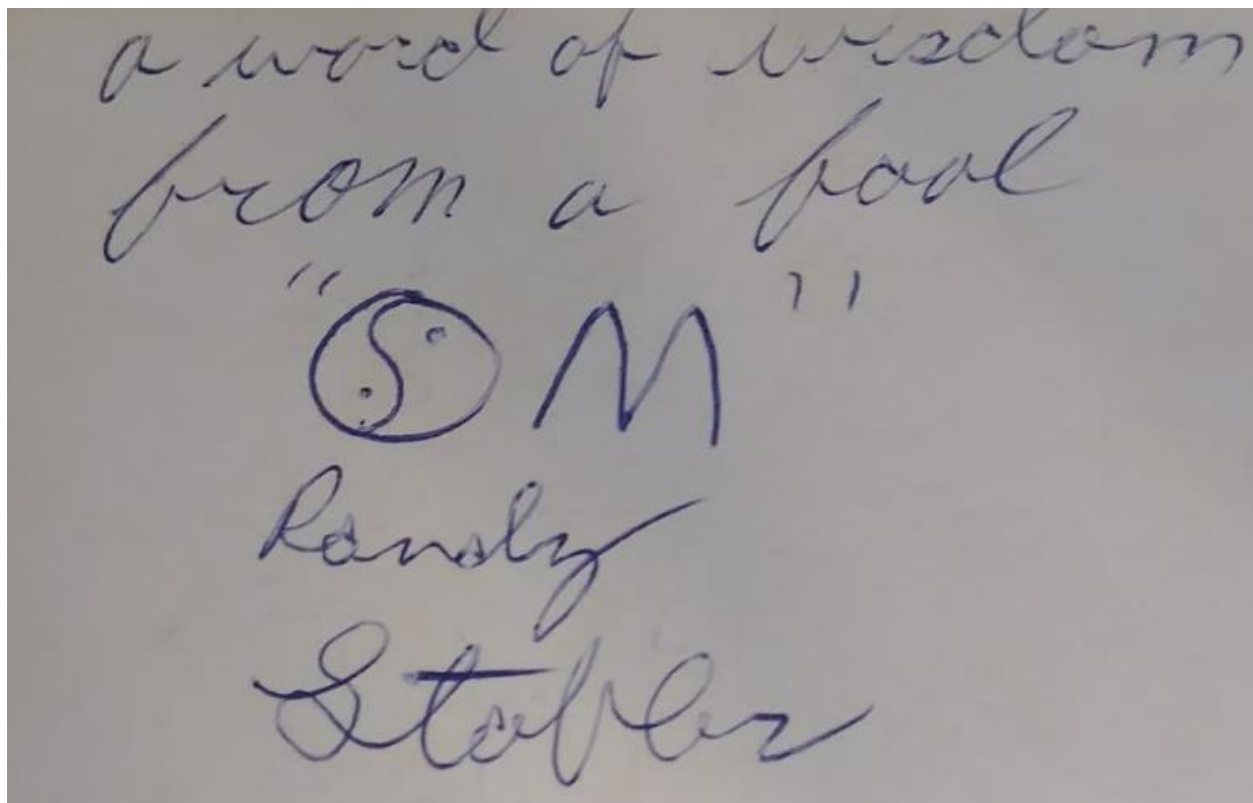 a word of wisdom
from a fool
"OM"
Randy
Stabler